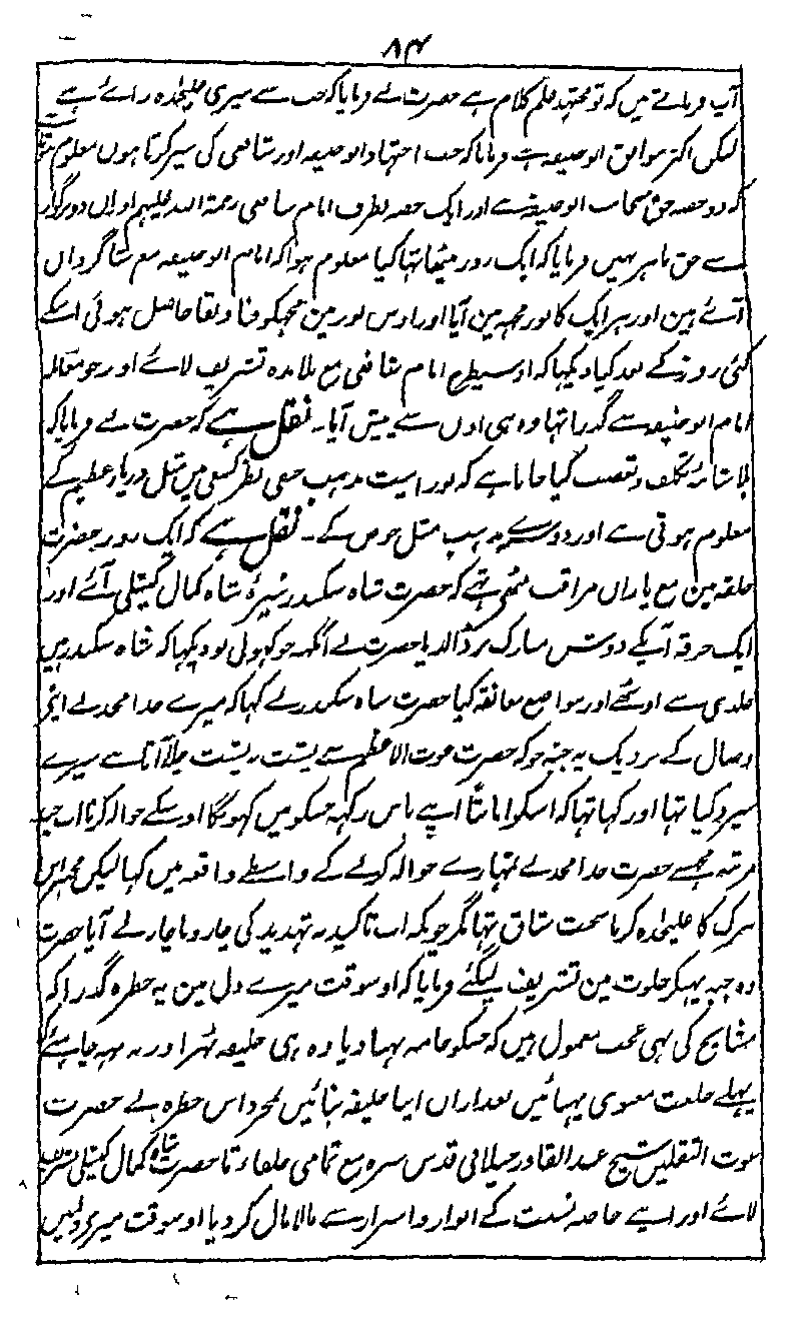 ۸۴
آپ فرماتے میں کہ تو مجتہد علم کلام ہے حضرت نے فرمایا کہ جب سے میری علیحدہ رائے ہے
لیکن اکثر موافق ابو حنیفہ ہے فرمایا کہ جب اجتہاد ابو حنیفہ اور شافعی کی سیر کرتا ہوں معلوم ہوتا
کہ دو حصہ حق بجانب ابو حنیفہ ہے اور ایک حصہ بطرف امام شافعی رحمۃ اللہ علیہم اور ان دو بزرگوار
سے حق باہر نہیں فرمایا کہ ایک روز بیٹھا تہا کیا معلوم ہوا کہ امام ابو حنیفہ مع شاگرداں
آتے ہین اور ہر ایک کا نور مجہ مین آیا اور اوس نور مین مجہکو فنا و بقا حاصل ہوئی اسکے
کئی روز کے بعد کیا دیکہا کہ اوسیطرح امام شافعی مع تلامذہ تشریف لائے اور جو معاملہ
امام ابو حنیفہ سے گذرا تہا وہ ہی اون سے پیش آیا۔ نقل ہے کہ حضرت نے فرمایا کہ
بلا شائبہ تکلف و تعصب کہا جاتا ہے کہ نورانیت مذہب حنفی نظر کشفی میں مثل دریائے عظیم کے
معلوم ہوتی ہے اور دوسرے مذہب مثل حوض کے۔ نقل ہے کہ ایک روز حضرت
حلقہ مین مع یاراں مراقب بیٹھے تہے کہ حضرت شاہ سکندر نبیرۂ شاہ کمال کیتلی آئے اور
ایک خرقہ آپکے دوش مبارک پر ڈالدیا حضرت نے آنکہہ جو کہولی تو دیکہا کہ شاہ سکندر ہیں
جلدی سے اوٹھے اور تواضع معانقہ کیا حضرت شاہ سکندر نے کہا کہ میرے جد امجد نے اپنی
وصال کے نزدیک یہ جبہ جو کہ حضرت غوث الاعظم سے پشت بہ پشت چلا آتا ہے میرے
سپرد کیا تہا اور کہا تہا کہ اسکو امانتاً اپنے پاس رکہہ جسکو میں کہونگا اوسکے حوالہ کرنا اب چند
مرتبہ مجہسے حضرت جد امجد نے تمہارے حوالہ کرنے کے واسطے واقعہ میں کہا لیکن مجہپر اس
تبرک کا علیحدہ کرنا سخت شاق تہا مگر چونکہ اب تاکید بہ تہدید کی چار و ناچار لے آیا حضرت
وہ جبہ پہنکر خلوت مین تشریف لیگئے فرمایا کہ اوسوقت میرے دل مین یہ خطرہ گذرا کہ
مشایخ کی یہی عجب معمول ہیں کہ جسکو جامہ پہنا دیا وہ ہی خلیفہ ٹہرا ورنہ یہ چاہئے کہ
پہلے خلعت معنوی پہنائیں بعد ازاں اپنا خلیفہ بنائیں بمجرد اس خطرہ کے حضرت
غوث الثقلین شیخ عبد القادر جیلانی قدس سرہ مع تمامی خلفاء تا حضرت شاہ کمال کیتلی تشریف
لائے اور اپنے خاصہ نسبت کے انوار و اسرار سے مالا مال کر دیا اوسوقت میرے دلمیں